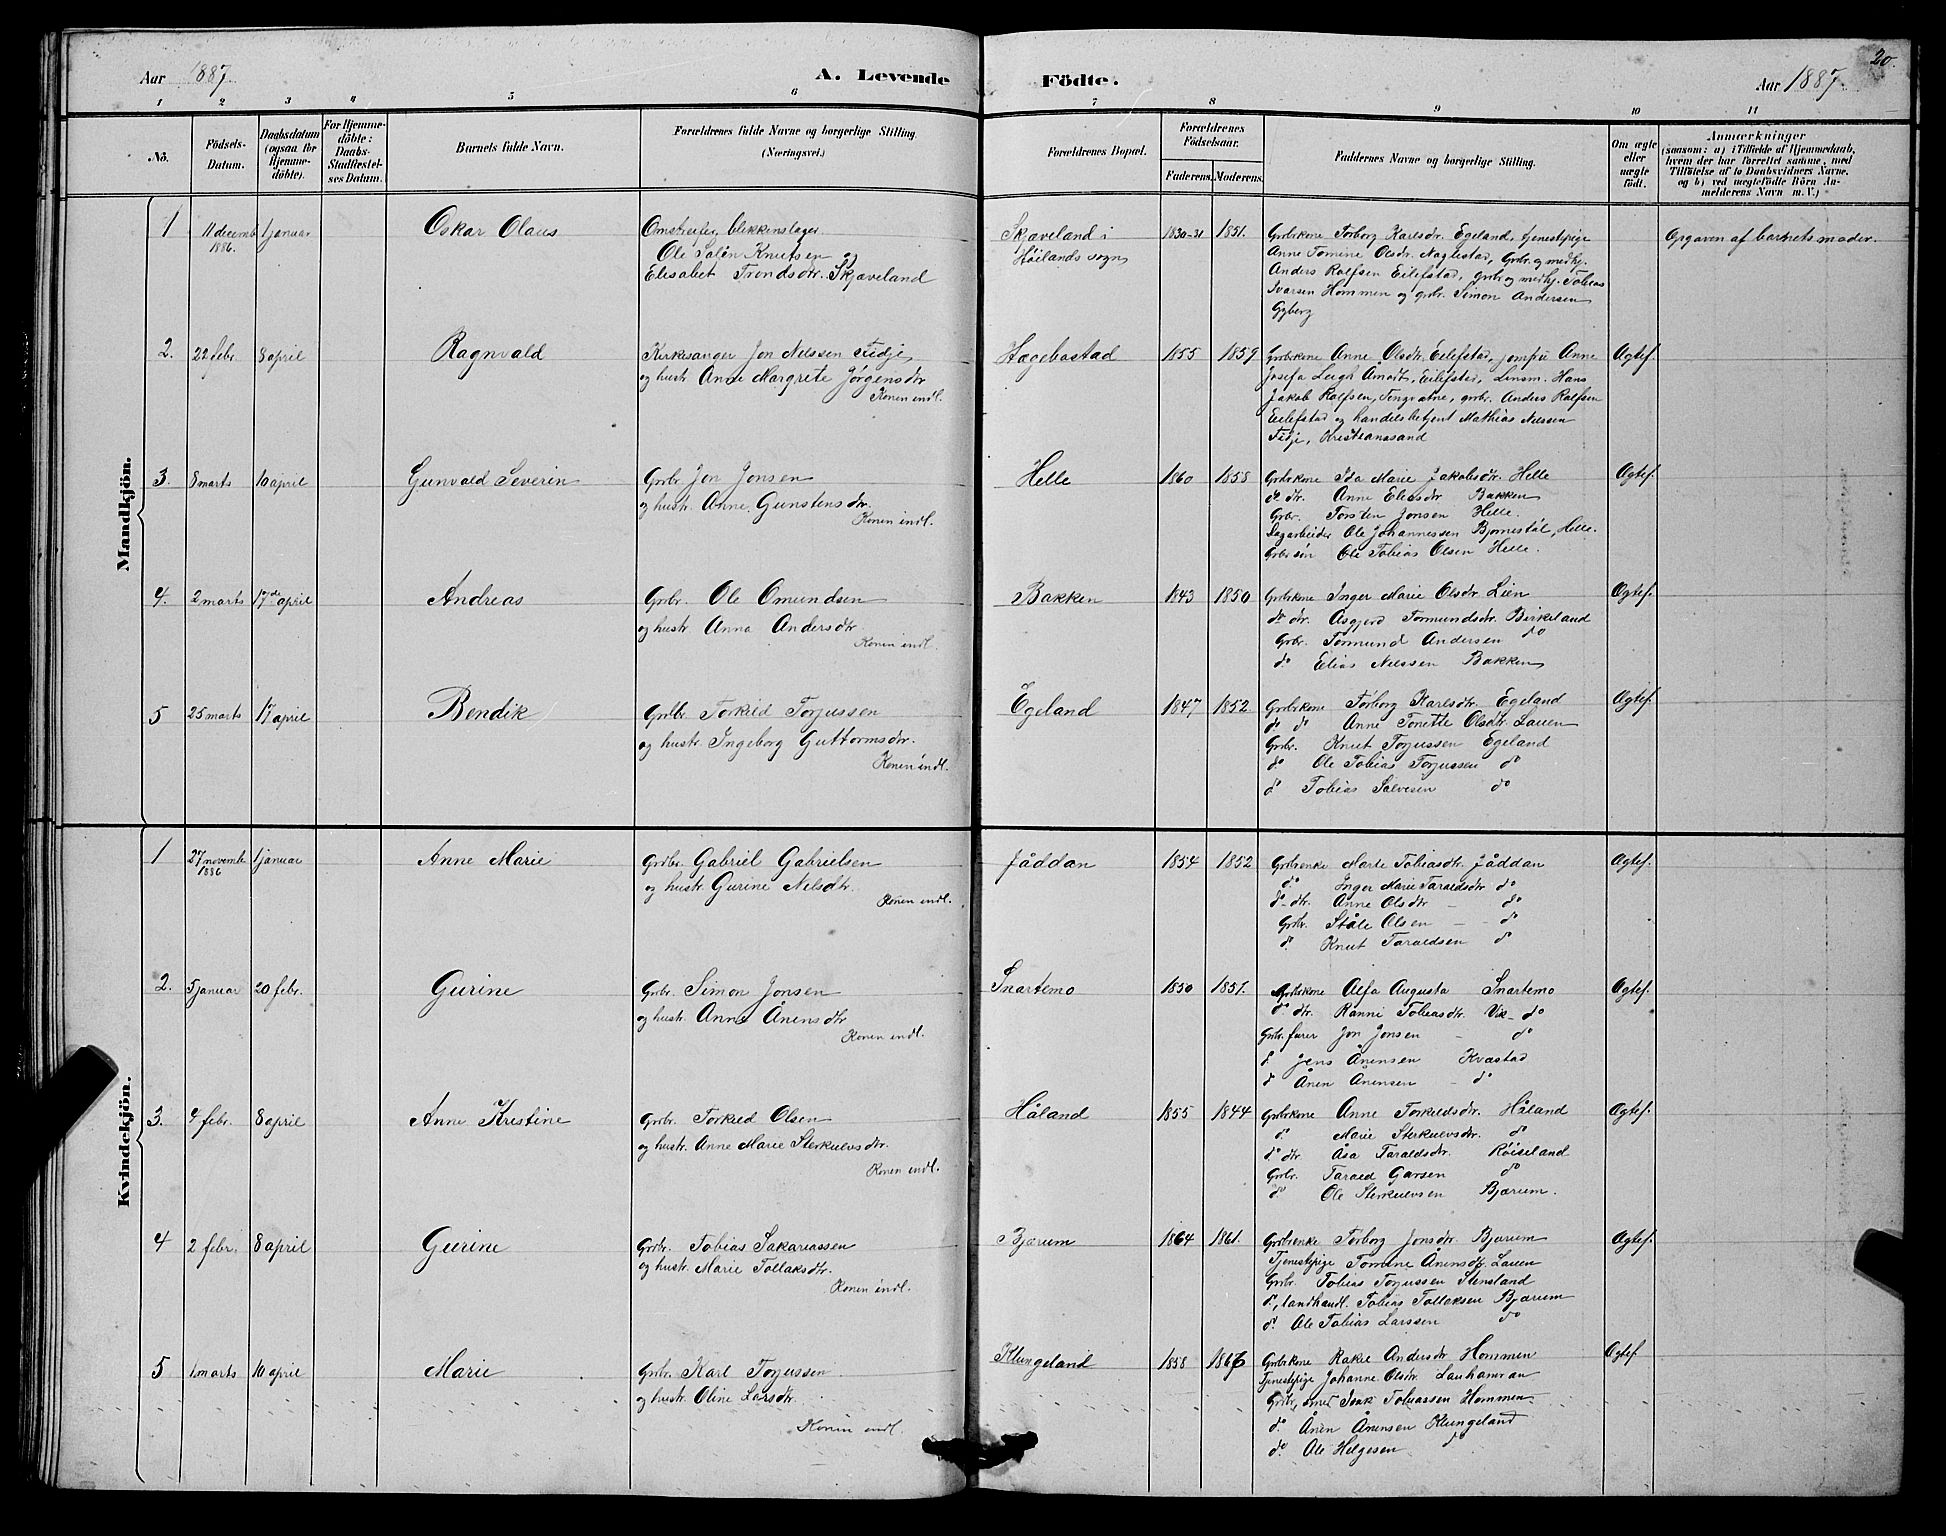 Aar 1887.
A. Levende Födte.
Aar 1887.
20.
1 2 3 4 5 6 7 8 9 10 11
No.
Födsels-Datum.
Daabsdatum (ogsaa for Hjemme-döbte).
For Hjemme-döbte: Daabs-Stadfæstel-ses Datum.
Barnets fulde Navn.
Forældrenes fulde Navne og borgerlige Stilling. (Næringsvei.)
Forældrenes Bopæl.
Forældrenes Födselsaar.
Faderens. Moderens.
Faddernes Navne og borgerlige Stilling.
Om ægte eller uægte födt.
Anmærkninger
(saasom: a) i Tilfælde af Hjemmedaab, hvem der har forrettet samme, med Tilföielse af to Daabsvidners Navne, og b) ved uegtefödte Börn An-melderens Navn m. V.)
Mandkjön.
1 11 decemb 1886. 1 januar Oskar Olaus
Omstreifer, blikkenslager
Ole Salen Knutsen og
Elisabet Trondsdtr. Skjæveland
Skjæveland i
Höilands sogn
1830-31 1851.
Grbrkone Torborg Karlsdtr. Egeland, tjenestepige
Anne Tomine Olsdtr. Naglestad, Grbr. og medhj.
Anders Rolfsen Eilefstad, grbr og medhj. Tobias
Ivarsen Hommen og grbr. Simon Andersen
Gyberg
Opgaven af barnets moder.
2. 22 febr. 8 april Ragnvald
Kirkesanger Jon Nilssen Fidje
og hustr. Anne Margrete Jörgensdtr
Konen indl.
Hægebostad 1855 1859
Grbrkone Anne Olsdtr. Eilefstad, jomfru Anne
Josefa Leigh Amodt, Eilefstad, Linsm. Hans
Jakob Rolfsen, Tingvatne, grbr. Anders Rolfsen
Eilefstad og handelsbetjent Mathias Nilssen
Fidje, Kristianssand
Ægtef.
3. 8 marts 10 april Gunvald Severin
Grbr. Jon Jonsen
og hustr. Anne Gunstensdtr.
Konen indl.
Helle 1860 1858
Grbrkone Ida Marie Jakobsdtr. Helle
do dtr. Anne Eliasdtr Bakken
Grbr. Torsten Jonsen Helle.
Dagarbeider Ole Johannessen Bjornestöl, Helle.
Grbr sön Ole Tobias Olsen Helle.
Ægtef.
4. 2 marts 17de april Andreas
Grbr. Ole Omundsen
og hustr. Anna Andersdtr.
Konen indl.
Bakken 1843 1850
Grbrkone Inger Marie Olsdtr Lien
do dtr. Asgjerd Tormundsdtr. Birkeland
Grbr. Tormund Andersen do
do Elias Nilssen Bakken
Ægtef.
5 25 marts 17 april Bendik
Grdbr. Torkild Torjussen
og hustr. Ingeborg Guttormsdtr.
Konen indl.
Egeland 1847 1852
Grdbrkone Torborg Karlsdtr. Egeland
do do Anne Tonette Olsdtr. Lauen
Grbr. Knut Torjussen Egeland
do Ole Tobias Torjussen do
do Tobias Salvesen do
Ægtef.
Kvindekjön.
1 27 novembr 1886 1 januar Anne Marie
Grdbr. Gabriel Gabrielsen
og hustr. Gurine Nilsdtr.
Konen indl.
Jåddan 1854 1852
Grbrenke Marte Tobiasdtr. Jåddan
do Inger Marie Taraldsdtr do
do - dtr. Anne Olsdtr - do
Grbr. Ståle Olsen - - do
do Knut Taraldsen do
Ægtef.
2. 5 januar 20 febr. Gurine
Grbr. Simon Jonsen
og hustr. Anne Ånensdtr
Konen indl.
Snartemo 1850 1851.
Grbrkone Alfa Augusta Snartemo
do dtr. Ranni Tobiasdtr. Vik - do
Grbr. furer Jon Jonsen - do
do Jens Ånensen Kvåstad
do Ånen Ånensen - do
Ægtef.
3. 4 febr. 8 april Anne Kristine
Grbr. Torkild Olsen
og hustr. Anne Marie Sterkulvsdtr.
Konen indl.
Håland 1855 1844
Grbrkone Anne Torkildsdtr. Håland
do Marie Sterkulvsdtr. do
do dtr. Åsa Taraldsdtr. Röiseland
Grbr. Tarald Garsen do
do Ole Sterkulvsen Bjærum.
Ægtef.
4 2 febr. 8 april Gurine
Grdbr. Tobias Sakariassen
og hustr. Marie Tollaksdtr.
Konen indl.
Bjærum 1864 1861.
Grdbrenke Torborg Jonsdtr. Bjærum
Tjenestepige Tomine Ånensdtr. Lauen
Grbr. Tobias Torjussen Stensland
do, landhandl. Tobias Tollaksen Bjærum
do Ole Tobias Larssen do
Ægtef.
5 1 marts 10 april Marie
Grbr. Karl Torjussen
og hustr. Oline Larsdtr.
Konen indl.
Klungeland 1858 1867
Grbrkone Rakel Andersdtr Hommen
Tjenestepige Johanne Olsdtr. Lauhamran
Grbr, smed Isak Tobiassen Hommen
do Ånen Ånensen Klungeland
do Ole Helgesen do
Ægtef